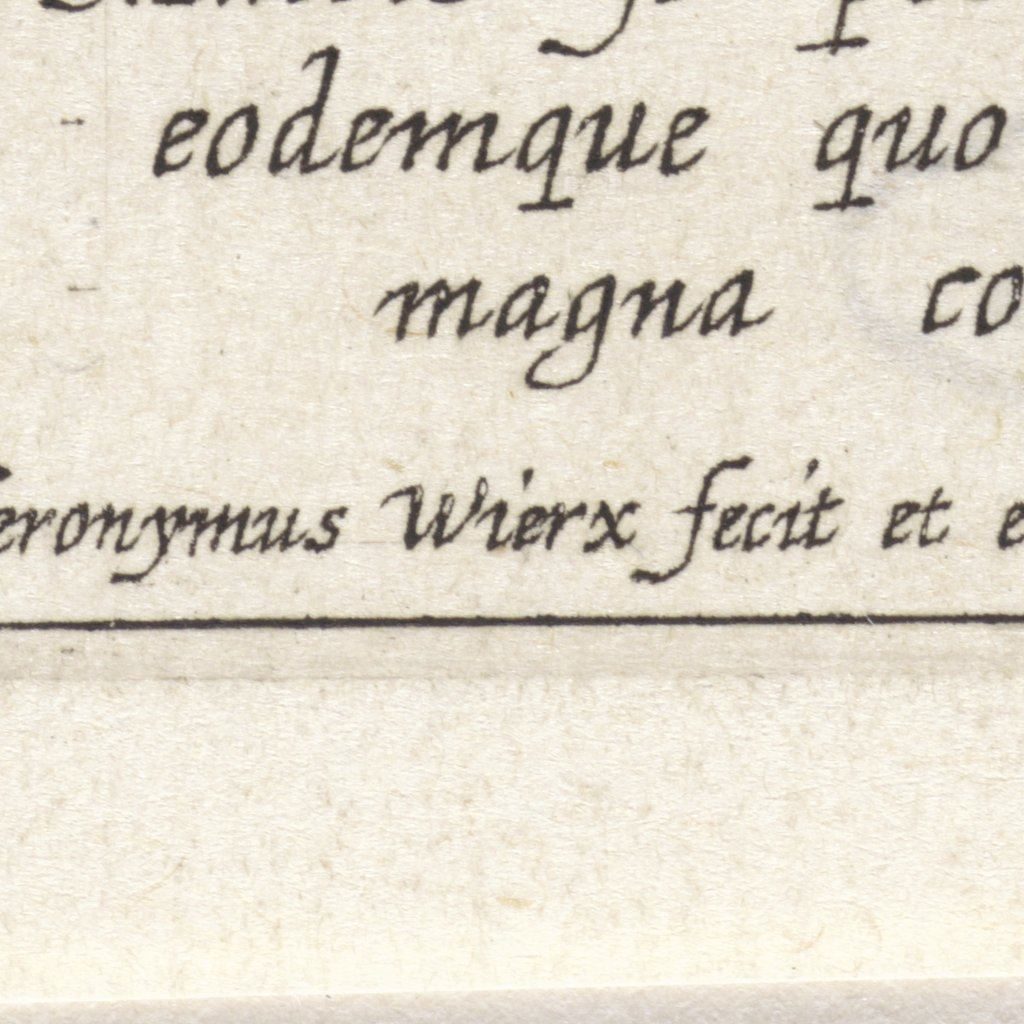 eodemque quo
magna co
eronymus Wierx fecit et e